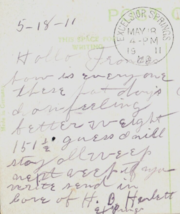 5-18-11
EXCELSIOR SPRINGS
MAY 18
4-PM
1911
MO.
Hello
how is every one
these hot days
I am feeling
better weight
151½ guess I will
stay all week
next week if you
write send in
care of H. B.